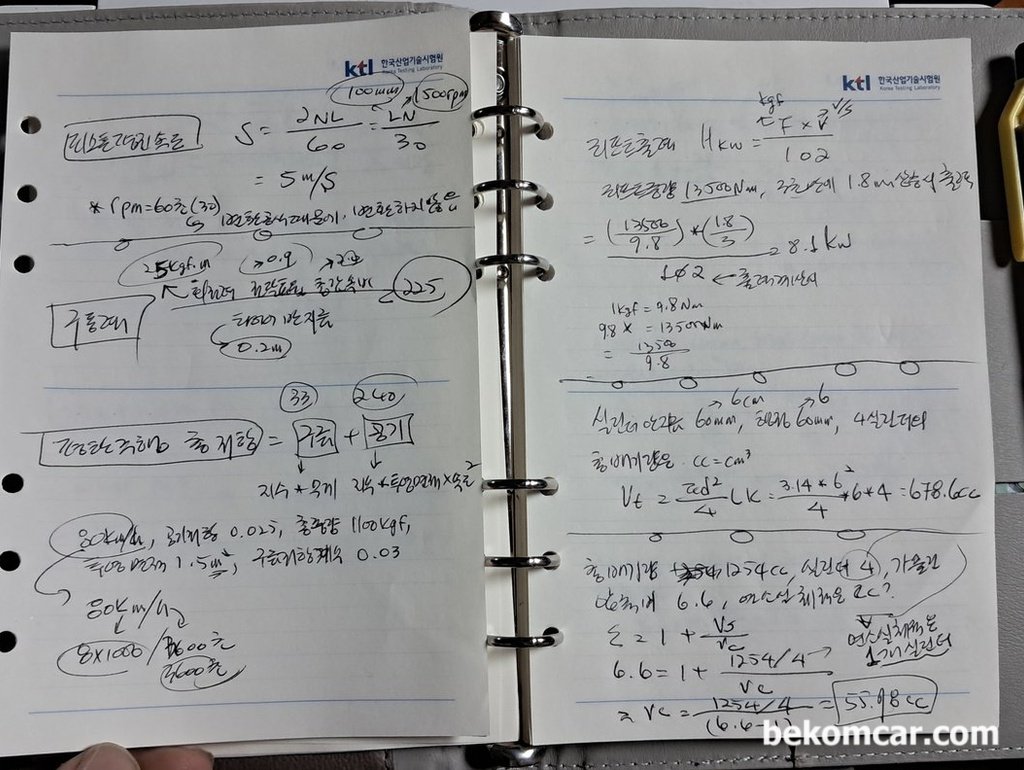 ktl 한국산업기술시험원
Korea Testing Laboratory
100mm 1500rpm
피스톤평균속도 S = 2NL/60 = LN/30
= 5m/s
* rpm=60초(30)
25kgf.m 0.9
회전력
225
구동력
타이어 반지름
0.2m
33 240
평탄주행 총 저항 = 구름 + 공기
계수*무게 계수*투영면적*속도²
80km/h, 공기저항 0.025, 총중량 1100kgf,
투영면적 1.5m², 구름저항계수 0.03
80km/시간
8×1000/3600초
3600초
ktl 한국산업기술시험원
Korea Testing Laboratory
kgf
리프트출력 Hkw = F × V/102
리프트중량 13500Nm, 3초만에 1.8m 상승시 출력
= (13500/9.8) * (1.8/3) = 8.1kw
102 ← 출력계산시
1kgf = 9.8Nm
98x = 13500Nm
= 13500/9.8
6cm 6
실린더 안지름 60mm, 행정 60mm, 4실린더의
총배기량은 cc=cm³
Vt = πd²/4 LK = 3.14*6²/4 *6*4 = 678.6cc
총배기량 1254cc, 실린더 4, 가솔린
압축비 6.6, 연소실체적은 몇cc?
ε = 1 + Vs/Vc
연소실체적은
1개 실린더
6.6 = 1 + 1254/4/Vc
= Vc = 1254/4/(6.6-1) = 55.98cc
bekomcar.com